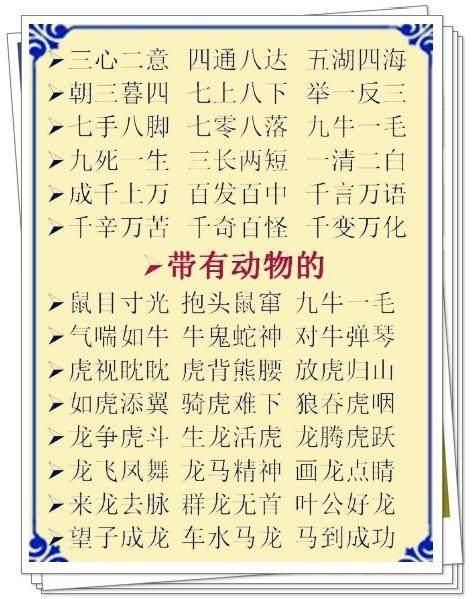 ➢三心二意 四通八达 五湖四海
➢朝三暮四 七上八下 举一反三
➢七手八脚 七零八落 九牛一毛
➢九死一生 三长两短 一清二白
➢成千上万 百发百中 千言万语
➢千辛万苦 千奇百怪 千变万化
➢带有动物的
➢鼠目寸光 抱头鼠窜 九牛一毛
➢气喘如牛 牛鬼蛇神 对牛弹琴
➢虎视眈眈 虎背熊腰 放虎归山
➢如虎添翼 骑虎难下 狼吞虎咽
➢龙争虎斗 生龙活虎 龙腾虎跃
➢龙飞凤舞 龙马精神 画龙点睛
➢来龙去脉 群龙无首 叶公好龙
➢望子成龙 车水马龙 马到成功